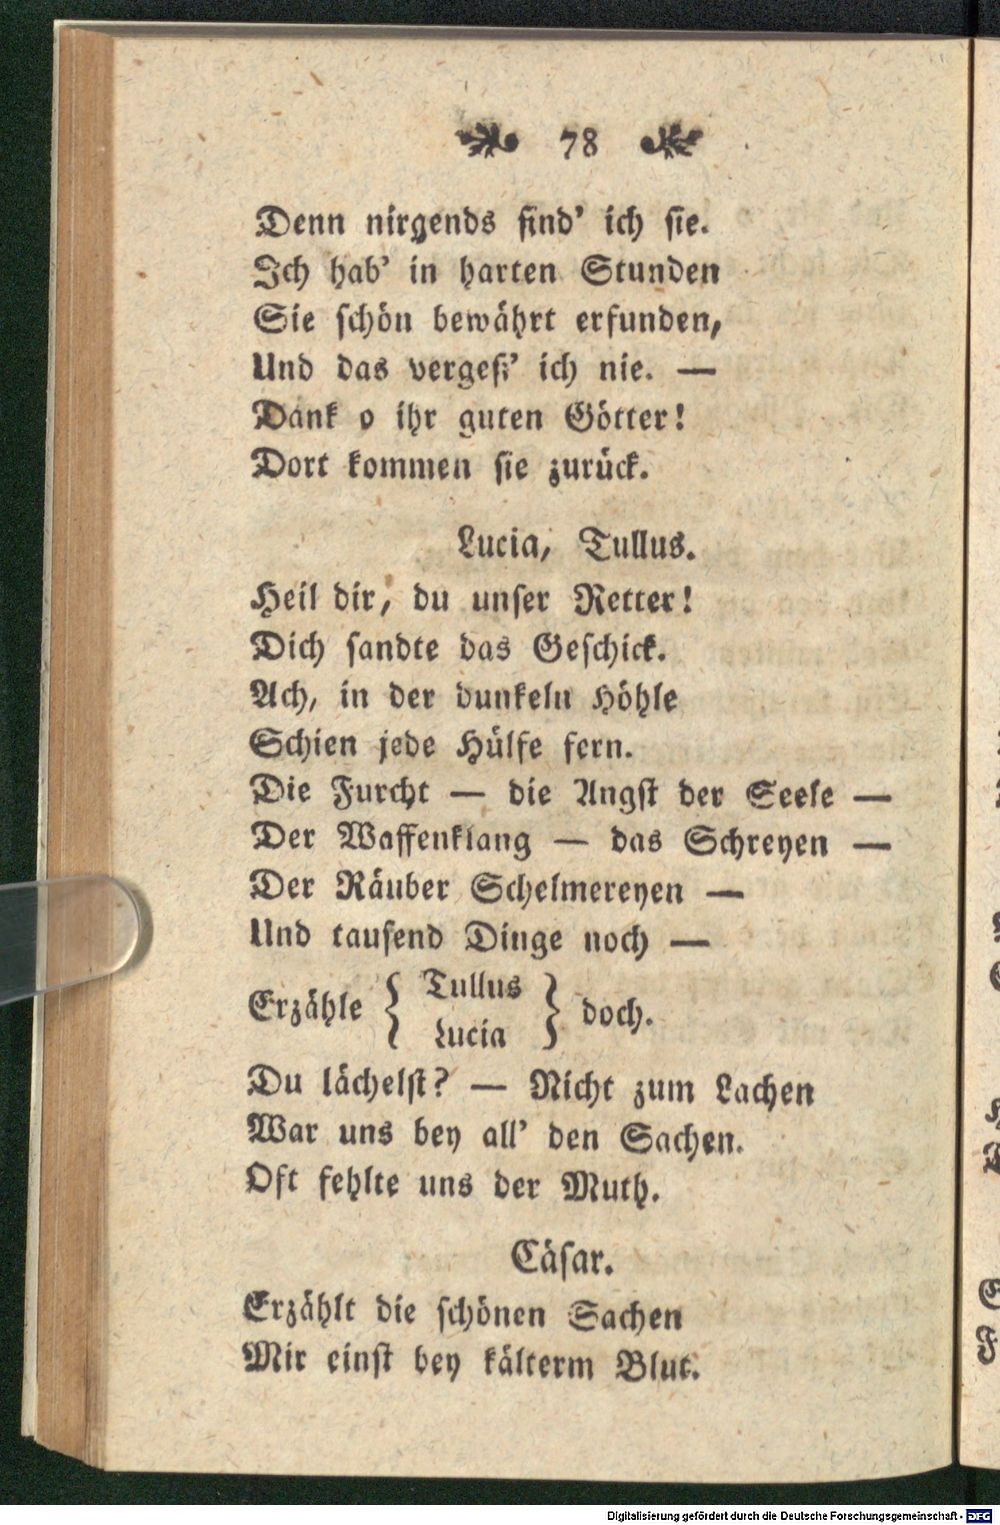 78
Denn nirgends find' ich sie.
Ich hab' in harten Stunden
Sie schön bewährt erfunden,
Und das vergeß' ich nie. —
Dank o ihr guten Götter!
Dort kommen sie zurück.
Lucia, Tullus.
Heil dir, du unser Retter!
Dich sandte das Geschick.
Ach, in der dunkeln Höhle
Schien jede Hülfe fern.
Die Furcht — die Angst der Seele —
Der Waffenklang — das Schreyen —
Der Räuber Schelmereyen —
Und tausend Dinge noch —
Erzähle { Tullus
Lucia } doch.
Du lächelst? — Nicht zum Lachen
War uns bey all' den Sachen.
Oft fehlte uns der Muth.
Cäsar.
Erzählt die schönen Sachen
Mir einst bey kälterm Blut.
Digitalisierung gefördert durch die Deutsche Forschungsgemeinschaft - DFG